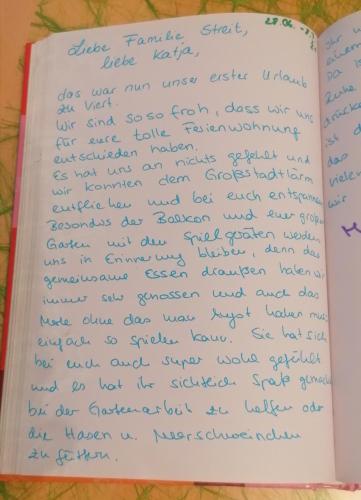 28.06.
Liebe Familie Streit,
liebe Katja,
das war nun unser erster Urlaub
zu viert.
Wir sind so so froh, dass wir uns
für eure tolle Ferienwohnung
entschieden haben.
Es hat uns an nichts gefehlt und
wir konnten dem Großstadtlärm
entfliehen und bei euch entspannen
Besonders der Balkon und euer großer
Garten mit den Spielgeräten werden
uns in Erinnerung bleiben, denn das
gemeinsame Essen draußen haben wir
immer sehr genossen und auch das
ohne das man Angst haben muss
einfach so spielen kann. Sie hat sich
bei euch auch super wohl gefühlt
und es hat ihr sichtlich Spaß gemacht
bei der Gartenarbeit zu helfen oder
die Hasen u. Meerschweinchen
zu füttern.
Ihr
einen
Da
Ruhe
drücken
ist d
das
vielen
wir